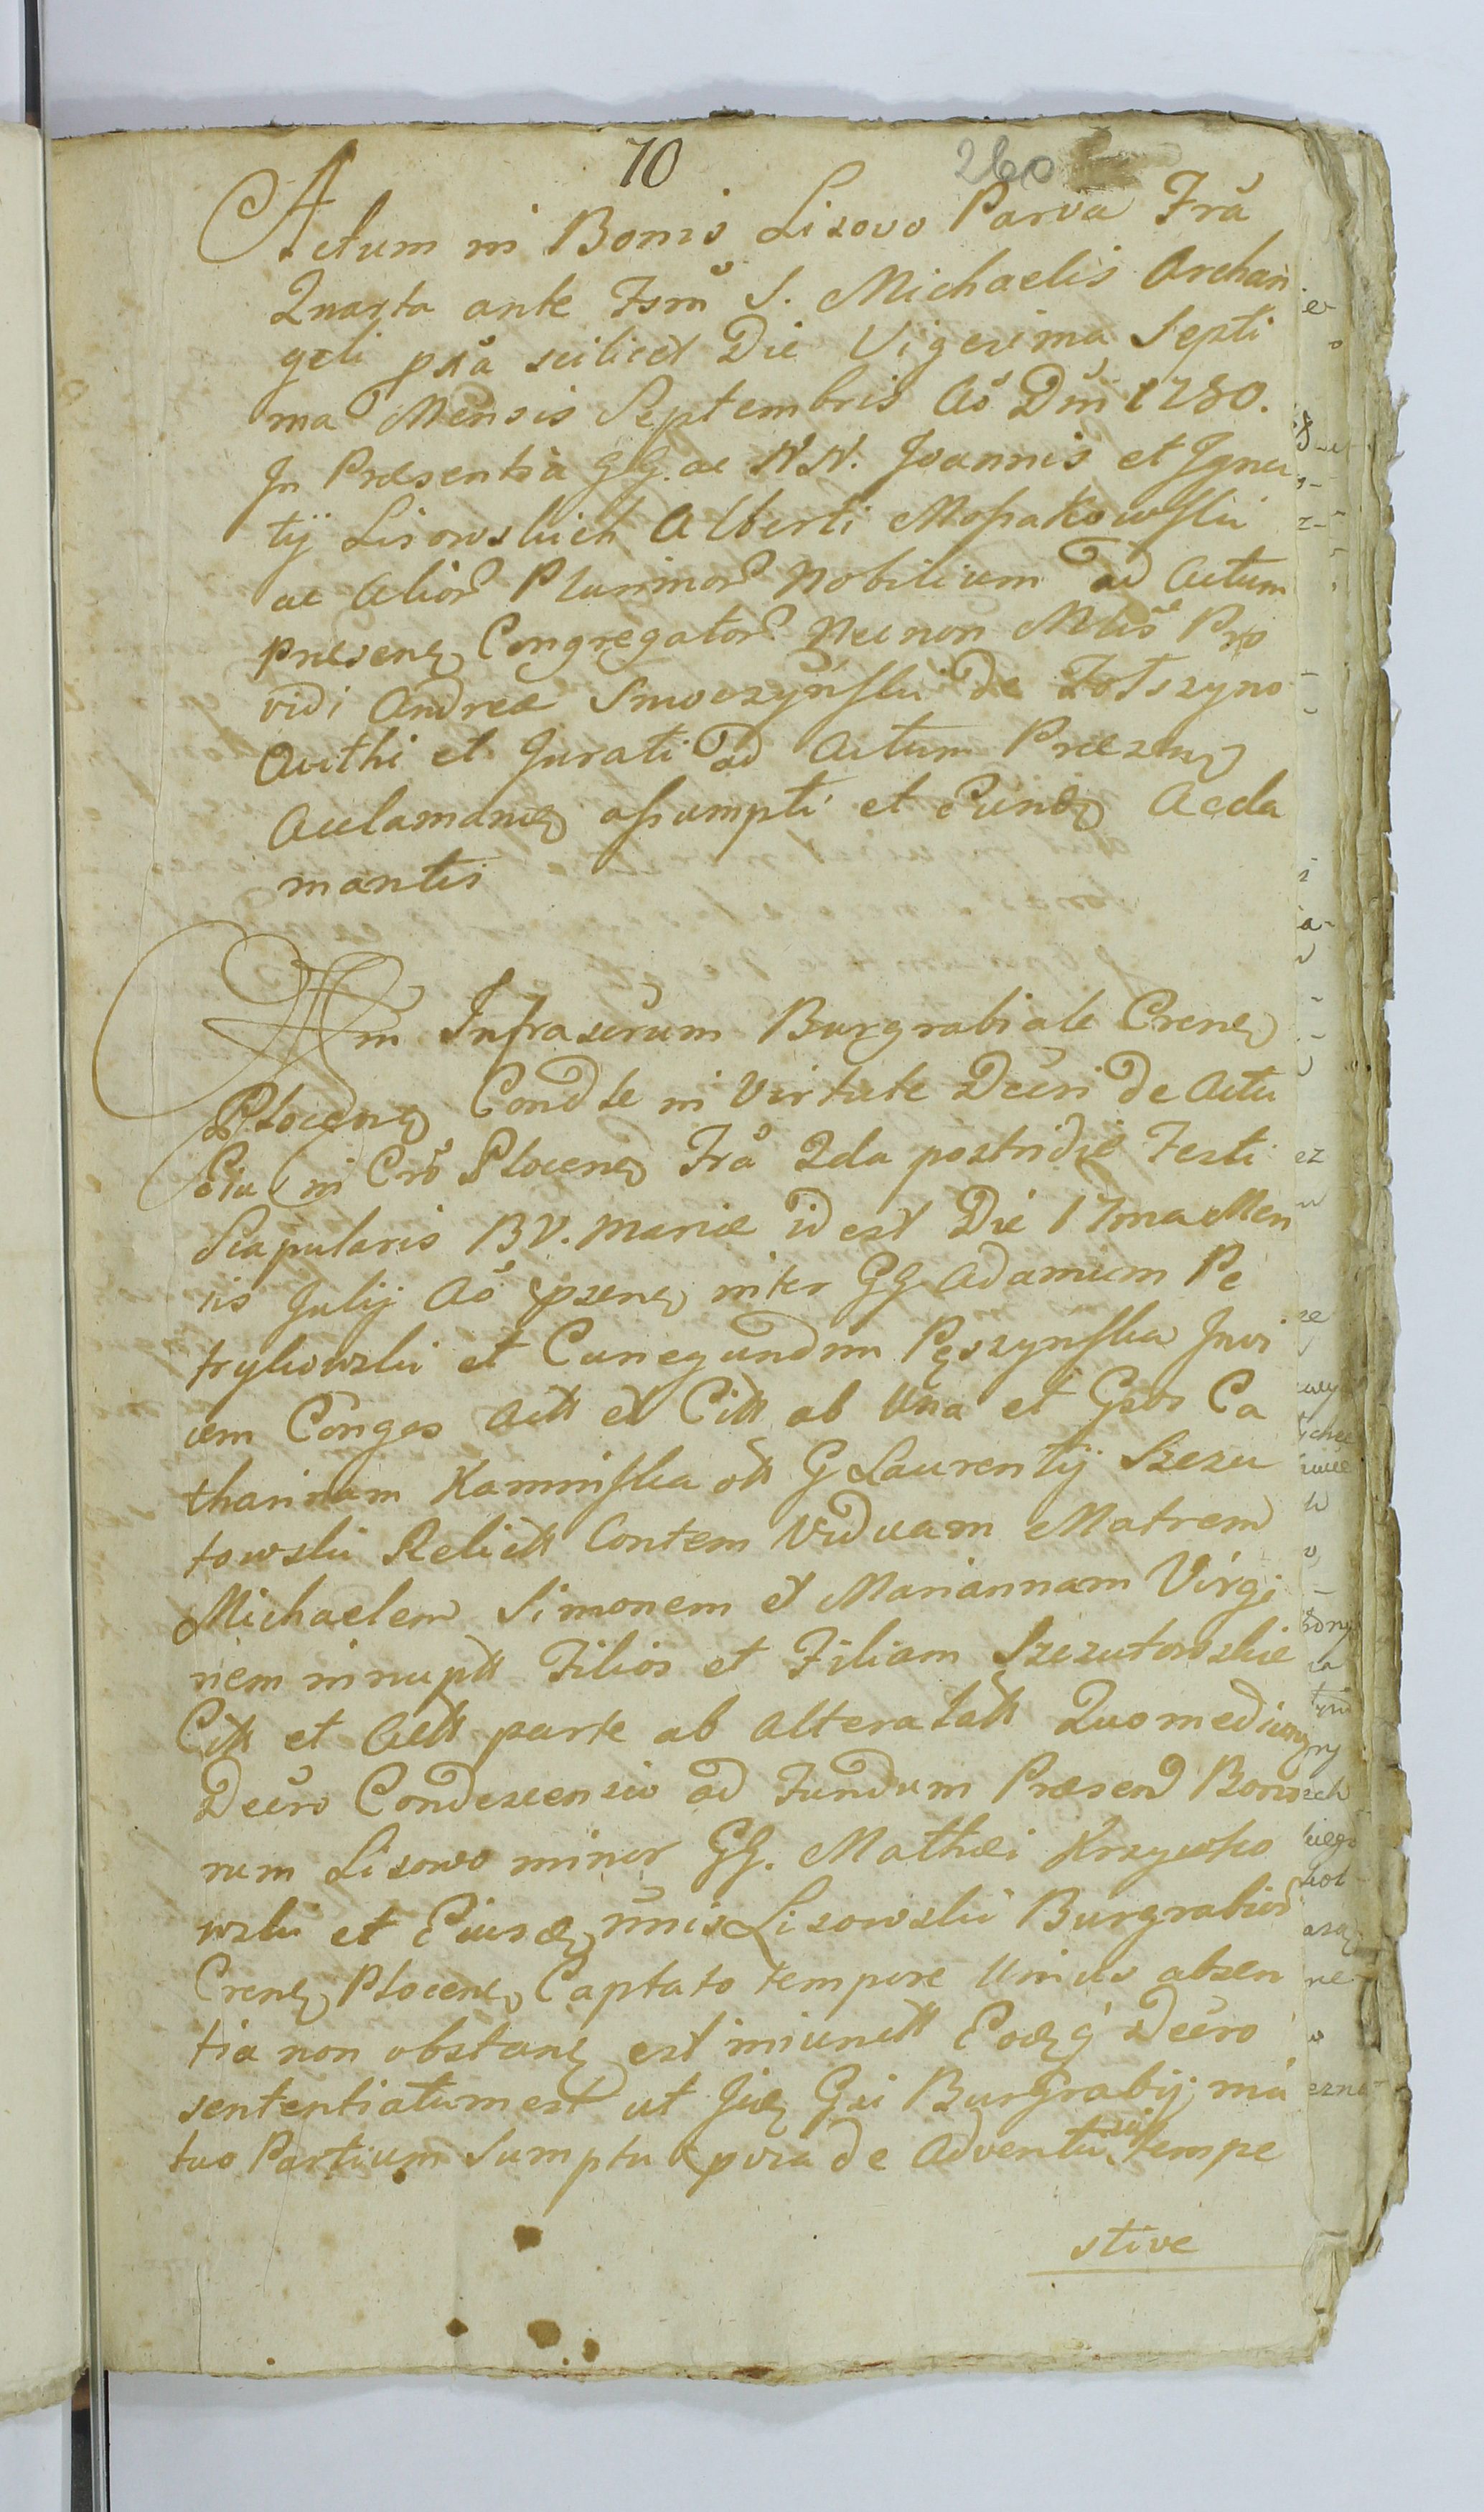 70
260
Actum in Bonis Lisovo Parva Frã
Quarta ante Fsm̃ S. Michaelis Archan
geli pxã scilicet Die Vigesima Septi
ma Mensis Septembris Aõ Dñi 1780.
In Præsentia GG. ac NN. Joannis et Igna
tij Lisowskich Alberti Mossakowski
ac Alior Plurimor Nobilium ad Actum
præsenę Congregator Necnon Mlis̃ Pro
vidi Andreæ Smoczynski de
Acthi et Jurati ad Actum Præzenę
Acclamanę assumpti et Eundę Accla
mantis
Infrascrum Burgrabiale Crenę
Plocenę Condle in Virtute Decri de Actu
in Crõ Plocenę Frã 2da postridie Festi
Scapularis BV. Mariæ id est Die 17ma Men
sis Julij Aõ pzenę inter GG Adamum Pe
trykowski et Cunegundim Pęszynska Invi
cem Conges Actt et Citt ab Una et Gsos Ca
tharinam Kaminska ott G Laurentij Szczu
towski Relictt Contem Viduam Matrem
Michaelem Simonem et Mariannam Virgi
nem innuptt Filios et Filiam Szczutowskie
Citt et Actt parte ab altera latt Quo medianę
Decro Condescensio ad Fundum Præsend Bono
rum Lisowo minor GG. Mathæi Krzywko
wski et Eiusdę nnis Lisowski Burgrabior
Crenę Plocenę Captato tempore Unius absen
tia non obstanę est iniunctt Eodęq Decro
sententiatum est ut Jidę Gsi Burgrabij mu
tuo Partium Sumptu pvia de Adventu sui tempe
stive